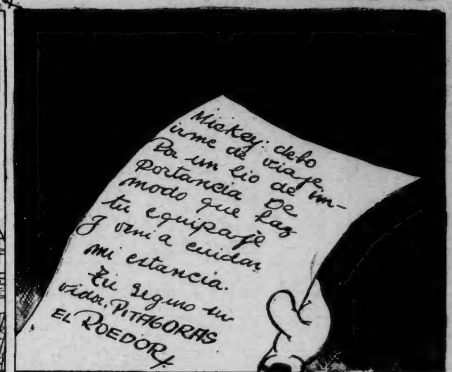 Mickey: debo
irme de viaje
Por un lio de im-
portancia De
modo que haz
tu equipaje
y vení a cuidar
mi estancia.
Tu seguro ser-
vidor. PITAGORAS
EL ROEDOR